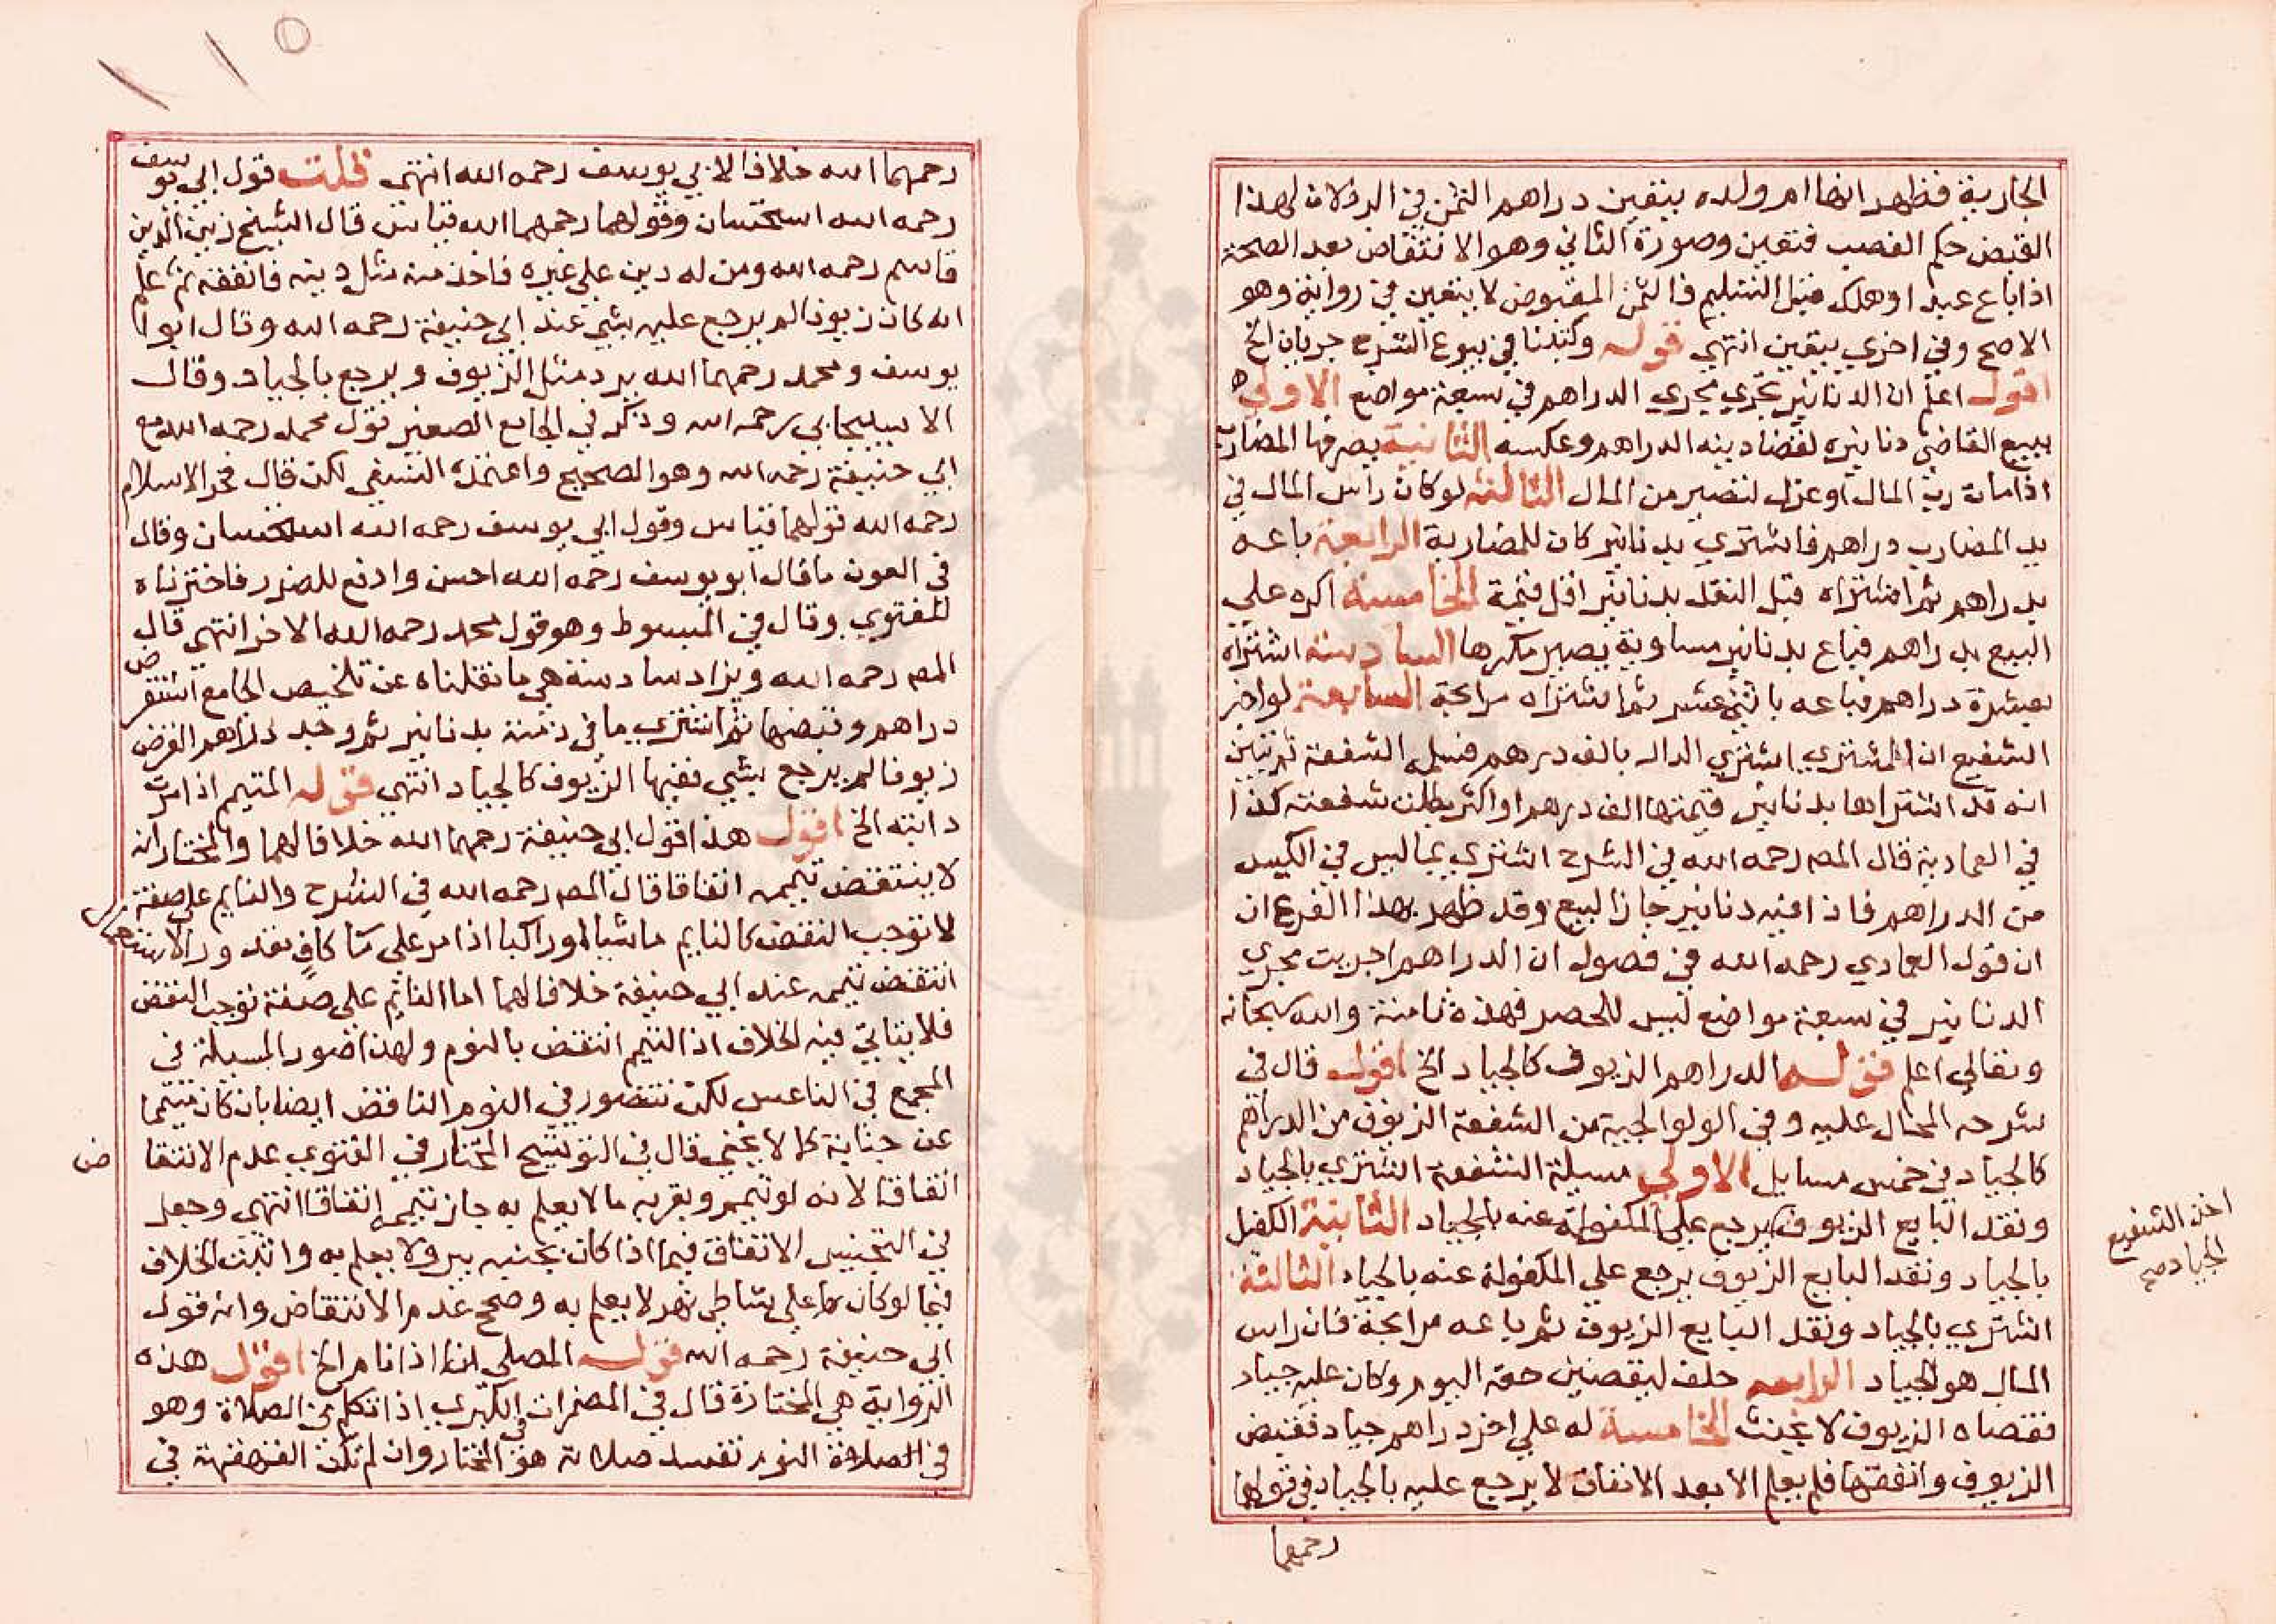 الجارية فظهر انها ام ولده يتعين دراهم الثمن في الدلالات لهذا
القبض حكم الغصب فتعين وصورة الثاني وهو الانتقاض بعد الصحة
اذا باع عبدا وهلك قبل التسليم فالثمن المقبوض لا يتعين في رواية وهو
الاصح وفي اخري يتعين انتهي قوله وكتبنا في بيوع الشرح جريان الخ
اقول اعلم ان الدنانير تجري مجري الدراهم في سبعة مواضع الاولي
يبيع القاضي دنانيره لقضا دينه الدراهم وعكسه الثانية يصرفها المضارب
اذا مات رب المال او عزل لتصير من المال الثالثة لو كان راس المال في
يد المضارب دراهم فاشتري بدنانير كان للمضاربة الرابعة باعه
بدراهم ثم اشتراه قبل النقد بدنانير اقل قيمة الخامسة اكره علي
البيع بدراهم فباع بدنانير مساوية يصير مكرها السادسة اشتراه
بعشرة دراهم فباعه باثني عشر ثم اشتراه مرابحة السابعة لو اخبر
الشفيع ان المشتري اشتري الدار بالف درهم فسلم الشفعة ثم تبين
انه قد اشتراها بدنانير قيمتها الف درهم او اكثر بطلت شفعته كذا
في العمادية قال المص رحمه الله في الشرح اشتري بما ليس في الكيس
من الدراهم فاذا فيه دنانير جاز البيع وقد ظهر بهذا الفرع ان
ان قول العمادي رحمه الله في فصول ان الدراهم اجريت مجري
الدنانير في سبعة مواضع ليس للحصر فهذه ثامنة والله سبحانه
وتعالي اعلم قوله الدراهم الزيوف كالجياد الخ اقول قال في
شرحه المحال عليه وفي الولوالجية من الشفعة الزيوف من الدراهم
كالجياد في خمس مسايل الاولي مسيلة الشفعة اشتري بالجياد
ونقد البايع الزيوف يرجع علي المكفولة عنه بالجياد الثانية الكفيل
بالجياد ونقد البايع الزيوف يرجع علي المكفولة عنه بالجياد الثالثة
اشتري بالجياد ونقد البايع الزيوف ثم باعه مرابحة فان راس
المال هو الجياد الرابعه حلف ليقضين حقه اليوم وكان عليه جياد
فقضاه الزيوف لا يحنث الخامسة له علي اخر دراهم جياد فقبض
الزيوف وانفقها فلم يعلم الا بعد الانفاق لا يرجع عليه بالجياد في قولهما
رحمهما
اخذ الشفيع
بالجياد صح
رحمهما الله خلافا لابي يوسف رحمه الله انتهي قلت قول ابي يوسف
رحمه الله استحسان وقولهما رحمهما الله قياس قال الشيخ زين الدين
قاسم رحمه الله ومن له دين علي غيره فاخذ منه مثل دينه فانفقه ثم علم
انه كان زيوفا لم يرجع عليه بشي عند ابي حنيفة رحمه الله وقال ابو
يوسف ومحمد رحمهما الله يرد مثل الزيوف ويرجع بالجياد وقال
الاسبيجابي رحمه الله وذكر في الجامع الصغير قول محمد رحمه الله مع
ابي حنيفة رحمه الله وهو الصحيح واعتمده النسفي لكن قال فخر الاسلام
رحمه الله قولهما قياس وقول ابي يوسف رحمه الله استحسان وقال
في العون ما قال ابو يوسف رحمه الله احسن وادفع للضرر فاخترناه
للفتوي وقال في المبسوط وهو قول محمد رحمه الله الاخر انتهي قال
المص رحمه الله ويزاد سادسة هي ما نقلناه عن تلخيص الجامع استقرض
دراهم وقبضها ثم اشتري ما في ذمته بدنانير ثم وجد دراهم القرض
زيوفا لم يرجع بشي ففيها الزيوف كالجياد انتهي قوله المتيمم اذا مرت
دابته الخ اقول هذا قول ابي حنيفة رحمهما الله خلافا لهما والمختار انه
لا ينتقض تيممه اتفاقا قال المص رحمه الله في الشرح والنايم علي صفة
لا توجب النقض كالنايم ماشيا او راكبا اذا مر علي ما كاف مقدور الاستعمال
انتقض تيممه عند ابي حنيفة خلافا لهما اما النايم علي صفة توجب النقض
فلا يتاتي فيه الخلاف اذ التيمم انتقض بالنوم ولهذا تصور المسيلة في
المجمع في الناعس لكن تتصور في النوم الناقض ايضا بان كان متيمما
عن جنابة كما لا يخفي قال في التوشيح المختار في الفتوي عدم الانتقاض
اتفاقا لانه لو تيمم وبقربه ما لا يعلم به جاز تيممه اتفاقا انتهي وجعل
في التجنيس الاتفاق فيما اذا كان بجنبه بير ولا يعلم به واثبت الخلاف
فيما لو كان علي شاطي نهر لا يعلم به وصحح عدم الانتقاض وانه قول
ابي حنيفة رحمه الله قوله المصلي اذا نام الخ اقول هذه
الرواية هي المختارة قال في المضمرات في الكبري اذا تكلم في الصلاة وهو
في الصلاة النوم تفسد صلاته هو المختار وان لم تكن القهقهة في